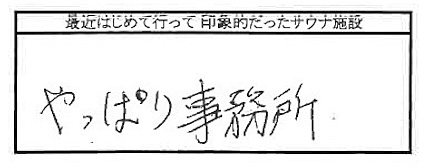 最近はじめて行って印象的だったサウナ施設
やっぱり事務所